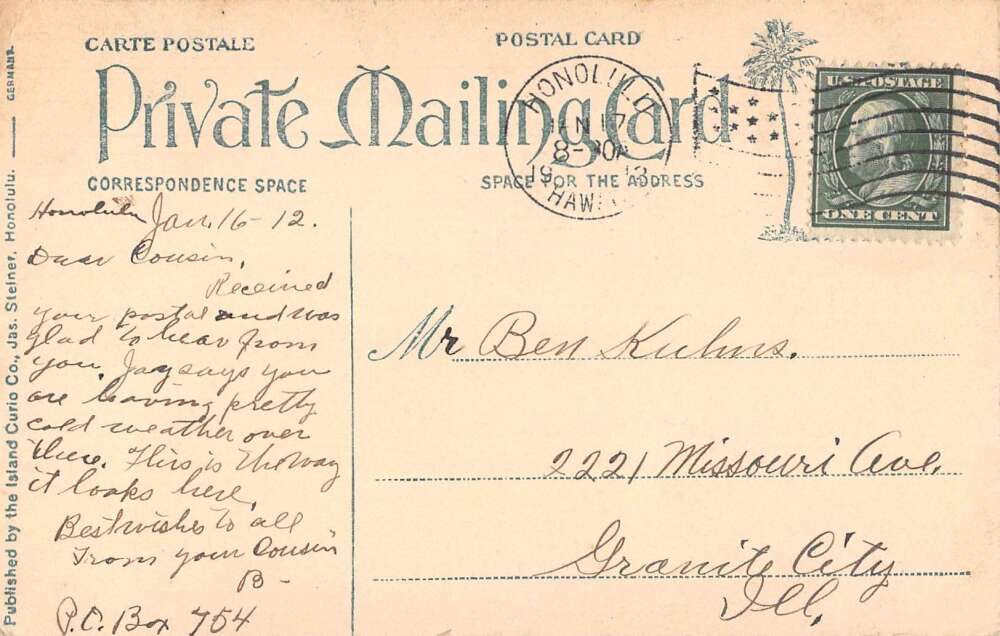 CARTE POSTALE
POSTAL CARD
Private Mailing Card
CORRESPONDENCE SPACE
SPACE FOR THE ADDRESS
HONOLULU
JAN 17
8-
19
HAWAII
U.S. POSTAGE
ONE CENT
Honolulu Jan. 16-12.
Dear Cousin,
Received
your postal and was
glad to hear from
you. Jay says you
are having pretty
cold weather over
there. This is the way
it looks here.
Best wishes to all
From your Cousin
B-
P.O. Box 754
Mr Ben Kuhns.
2221 Missouri Ave.
Granite City
Ill.
Published by the Island Curio Co., Jas. Steiner, Honolulu.
GERMANY.